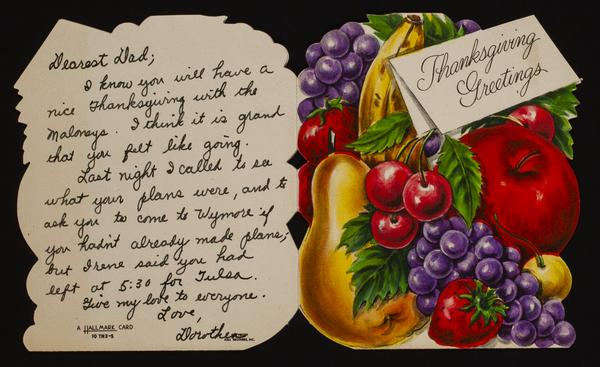 Dearest Dad;
I know you will have a
nice Thanksgiving with the
Maloneys. I think it is grand
that you felt like going.
Last night I called to see
what your plans were, and to
ask you to come to Wymore if
you hadn't already made plans;
but Irene said you had
left at 5:30 for Tulsa.
Give my love to everyone.
Love,
Dorothea
A HALLMARK CARD
10 TH 2-5
HALL BROTHERS, INC.
Thanksgiving
Greetings